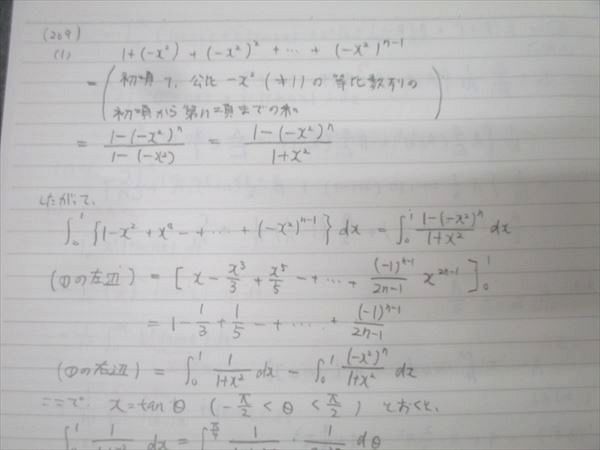 (209)
(1) 1+(-x²)+(-x²)²+…+(-x²)ⁿ⁻¹
= (初項1, 公比 -x² (≠1) の等比数列の
初項から第n項までの和)
= (1-(-x²)ⁿ)/(1-(-x²)) = (1-(-x²)ⁿ)/(1+x²)
したがって,
∫₀¹ {1-x²+x⁴-+…+(-x²)ⁿ⁻¹} dx = ∫₀¹ (1-(-x²)ⁿ)/(1+x²) dx
(①の左辺) = [x - x³/3 + x⁵/5 -+…+ (-1)ⁿ⁻¹/(2n-1) x²ⁿ⁻¹]₀¹
= 1 - 1/3 + 1/5 -+…+ (-1)ⁿ⁻¹/(2n-1)
(①の右辺) = ∫₀¹ 1/(1+x²) dx - ∫₀¹ (-x²)ⁿ/(1+x²) dx
ここで x=tanθ (-π/2 < θ < π/2) とおくと,
dx = dθ